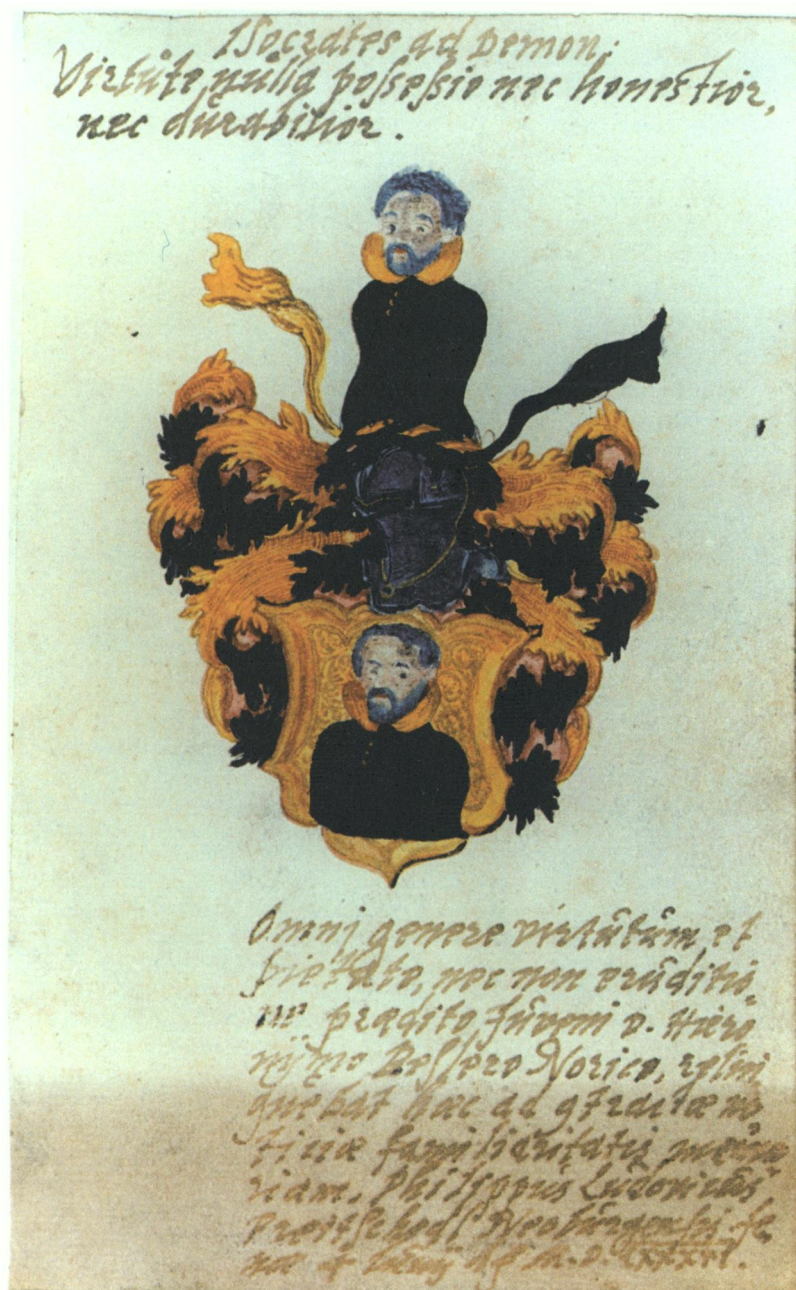 Isocrates ad Demon:
Virtute nulla possessio nec honestior,
nec durabilior.
Omnj genere virtutum et
pietate, nec non eruditio,
ne prædito Juveni D. Hiero
nymo Beslero Norico, relin
quebat hæc ad contractæ no
ticiæ familiaritatis memo
riam. Philippus Ludovicus
Neoburgensis Je
næ M.D.